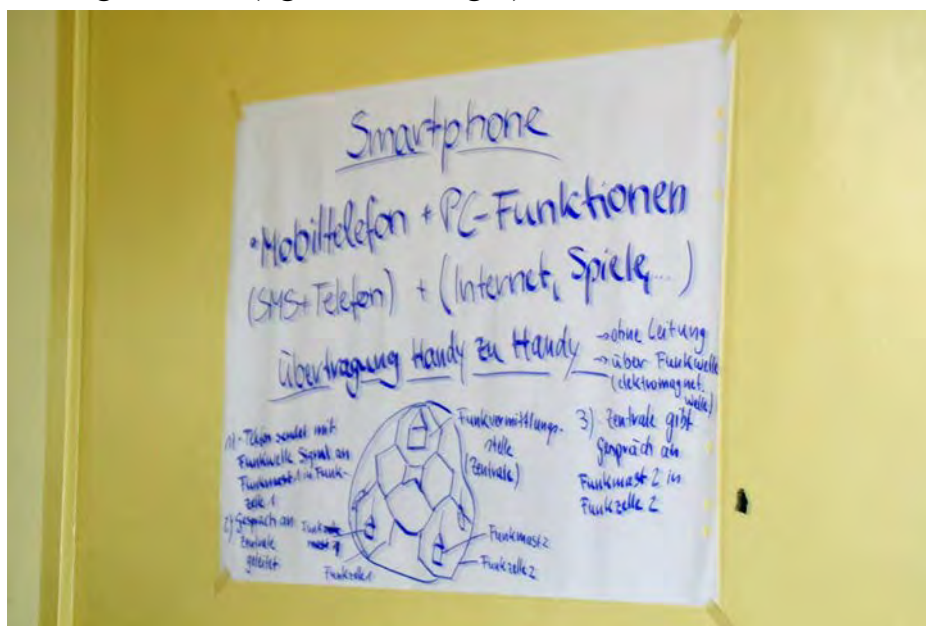 Smartphone
*Mobiltelefon + PC-Funktionen
(SMS+Telefon) + (Internet, Spiele,...)
Übertragung Handy zu Handy
→ ohne Leitung
→ über Funkwelle
(elektromagnet.
welle)
1) - Telefon sendet mit
Funkwelle Signal an
Funkmast 1 in Funk-
zelle 1
2) Gespräch an
Zentrale
geleitet
Funkvermittlungs-
stelle
(Zentrale)
Funk-
mast 1
Funkzelle 1
Funkmast 2
Funkzelle 2
3) Zentrale gibt
Gespräch an
Funkmast 2 in
Funkzelle 2